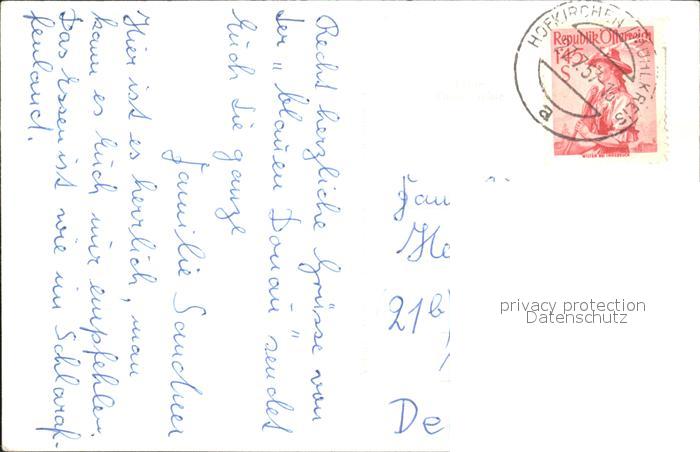 Recht herzliche Grüsse von
der „blauen Donau" sendet
Euch die ganze
Familie Sandner
Hier ist es herrlich, man
kann es Euch nur empfehlen.
Das Essen ist wie im Schlaraf-
fenland.
HOFKIRCHEN
MÜHLKREIS
a
Republik Österreich
1 S
Fam
21b
De
privacy protection
Datenschutz